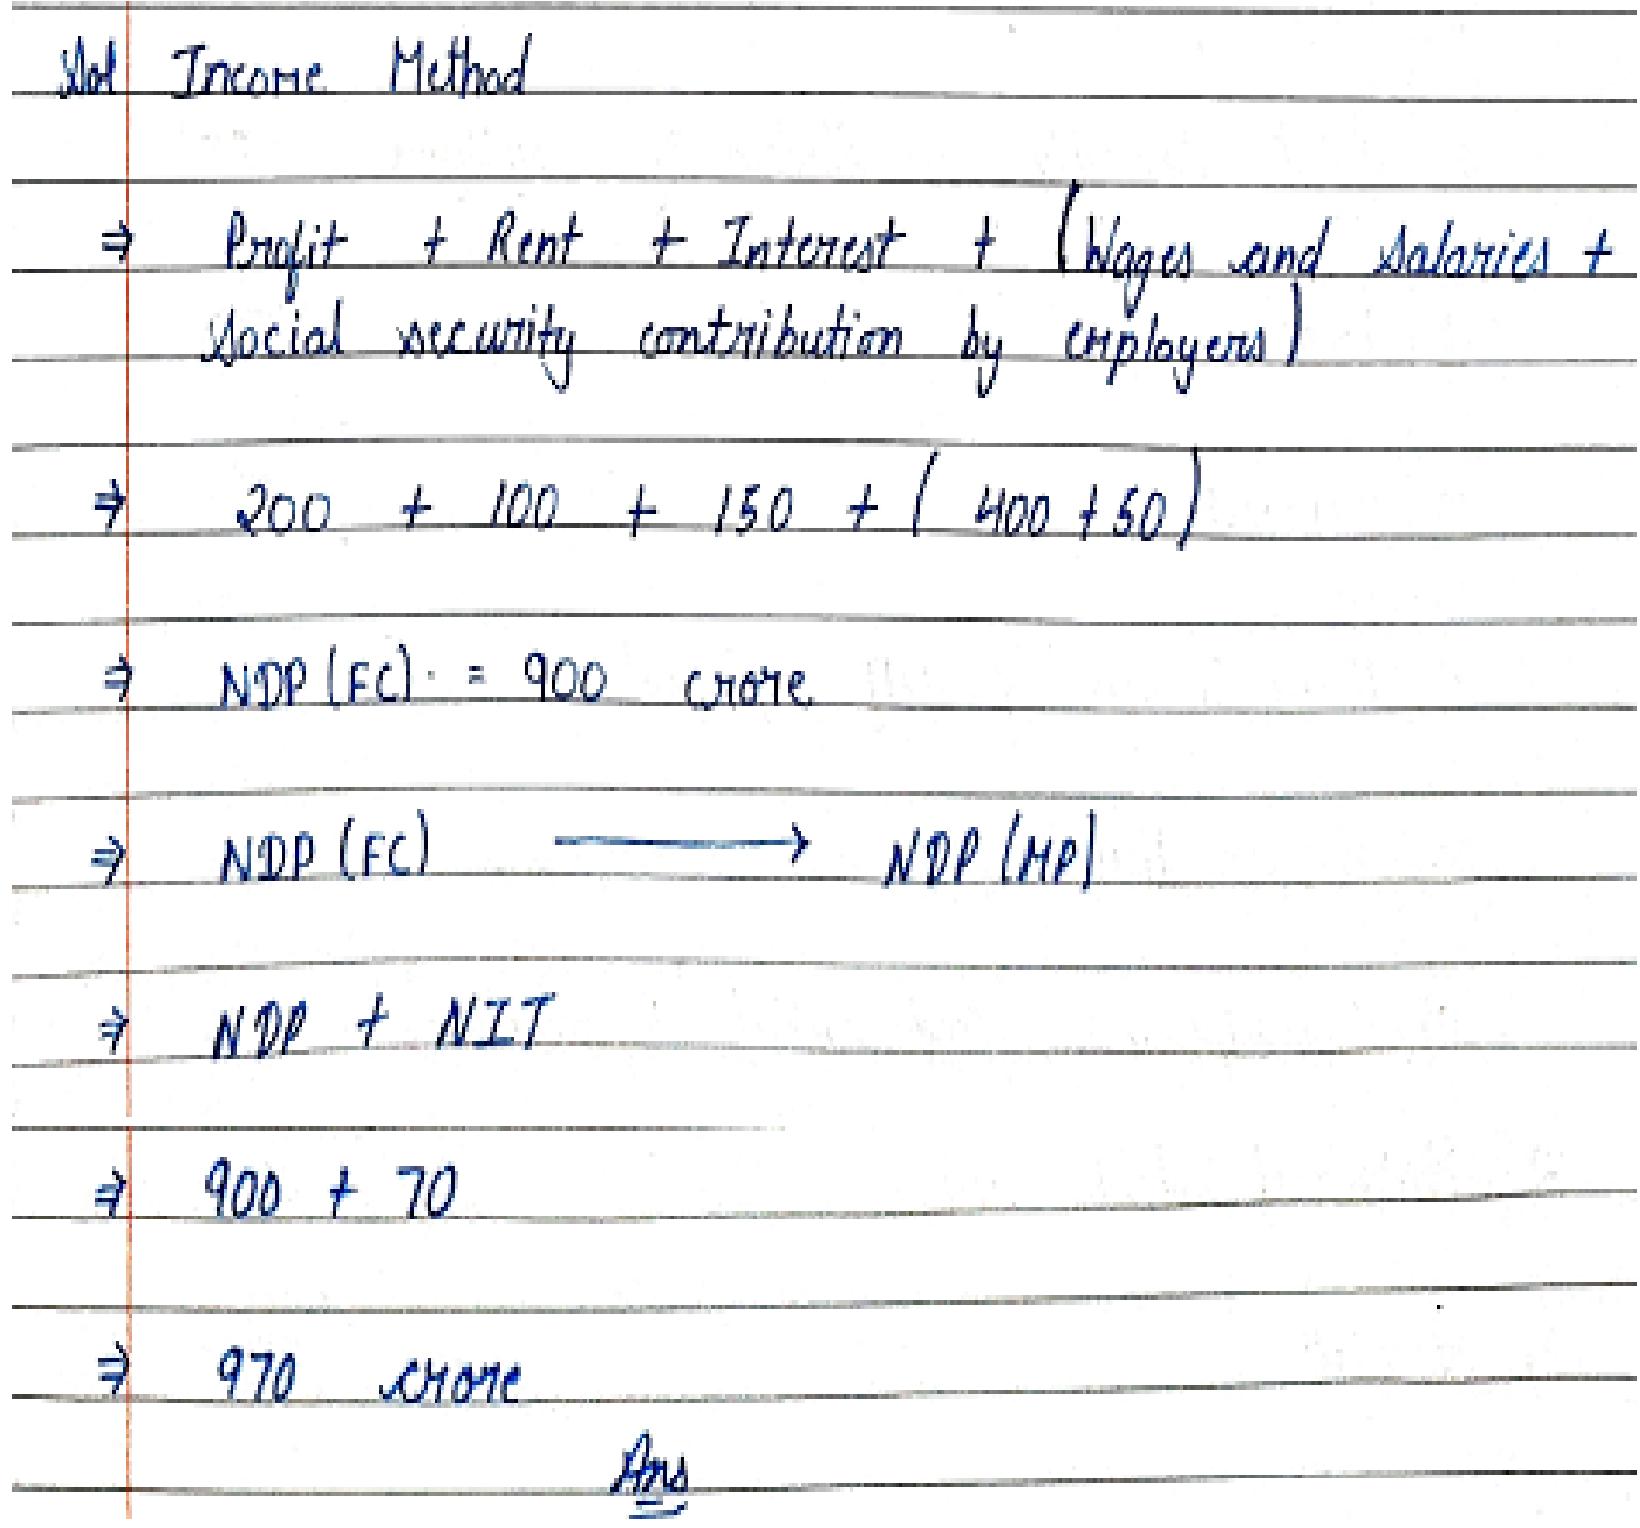 Sol Income Method
⇒ Profit + Rent + Interest + (Wages and salaries +
social security contribution by employers)
⇒ 200 + 100 + 150 + (400 + 50)
⇒ NDP (FC). = 900 crore
⇒ NDP (FC) ⟶ NDP (MP)
⇒ NDP + NIT
⇒ 900 + 70
⇒ 970 crore
Ans